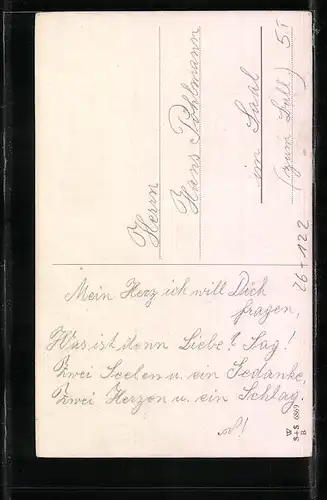 Herrn
Hans Pohlmann
im Saal
(zum Ball) 5I
26+122
Mein Herz ich will Dich
fragen,
Was ist denn Liebe? Sag!
Zwei Seelen u. ein Gedanke,
Zwei Herzen u. ein Schlag.
W
S+S 6869
B